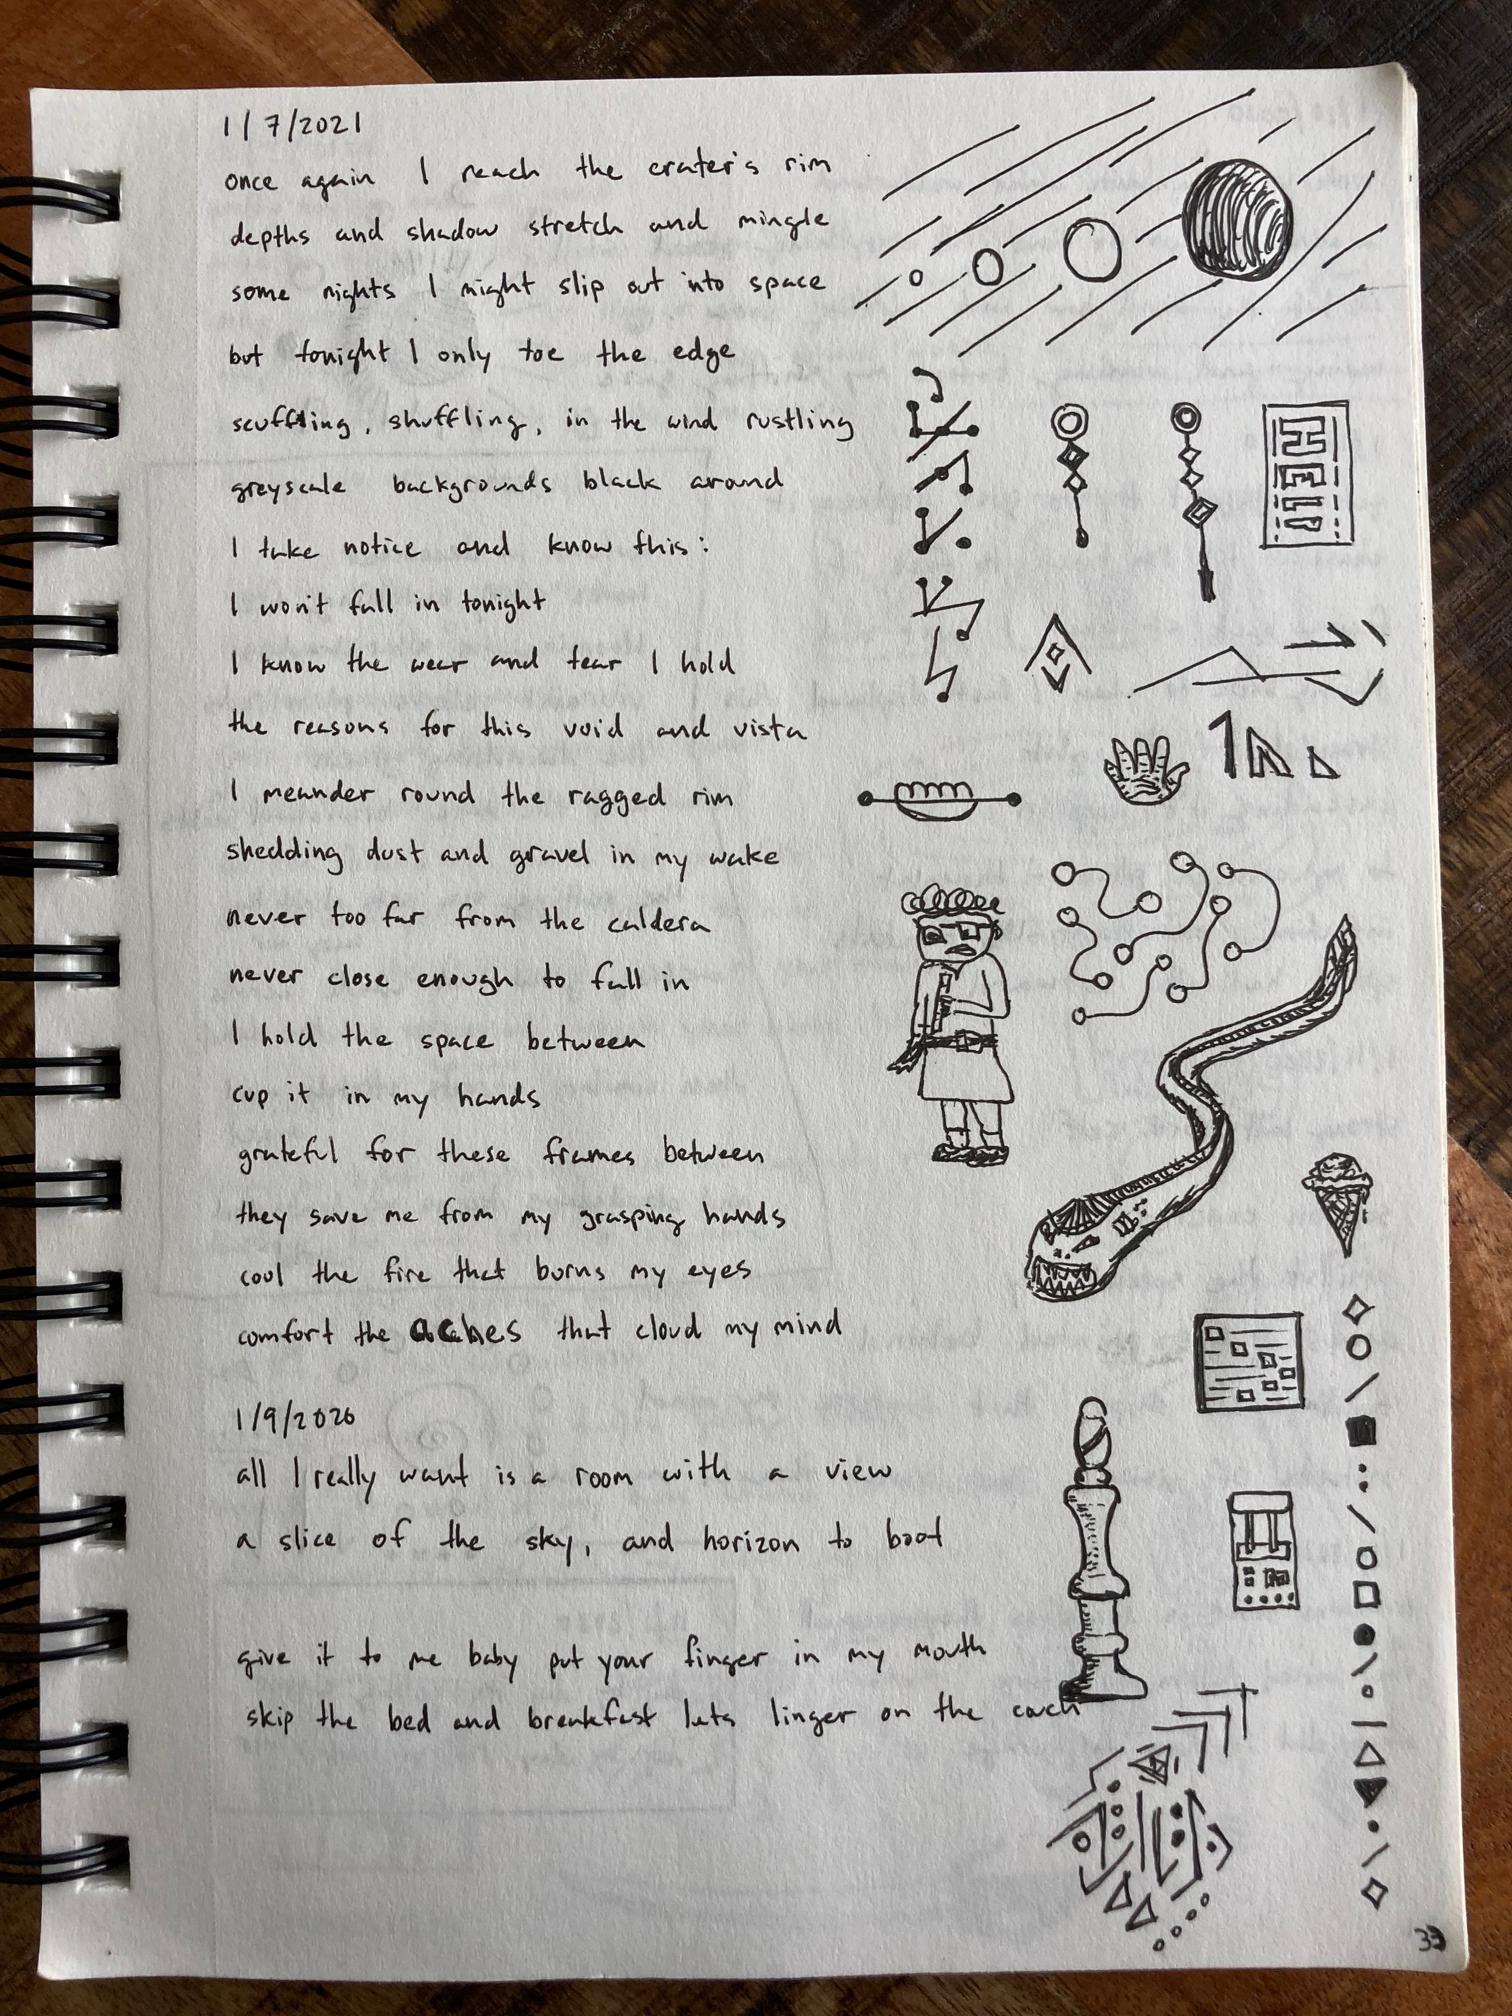 1/7/2021
once again I reach the crater's rim
depths and shadow stretch and mingle
some nights I might slip out into space
but tonight I only toe the edge
scuffling, shuffling, in the wind rustling
greyscale backgrounds black around
I take notice and know this:
I won't fall in tonight
I know the wear and tear I hold
the reasons for this void and vista
I meander round the ragged rim
shedding dust and gravel in my wake
never too far from the caldera
never close enough to fall in
I hold the space between
cup it in my hands
grateful for these frames between
they save me from my grasping hands
cool the fire that burns my eyes
comfort the aches that cloud my mind
1/9/2020
all I really want is a room with a view
a slice of the sky, and horizon to boot
give it to me baby put your finger in my mouth
skip the bed and breakfast lets linger on the couch
33